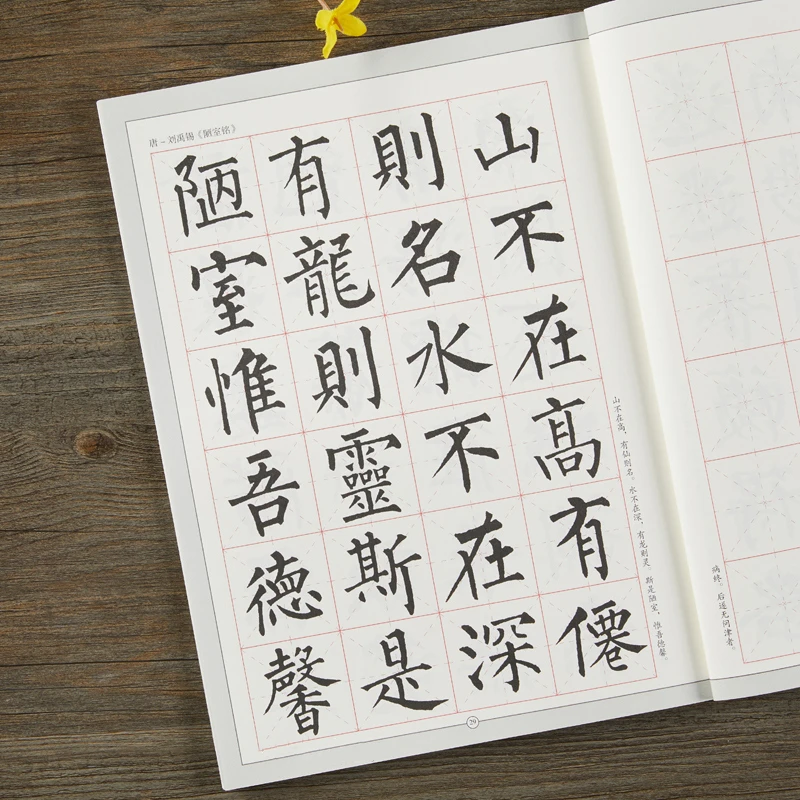 唐－刘禹锡《陋室铭》
山不在高有僊
則名水不在深
有龍則靈斯是
陋室惟吾德馨
山不在高，有仙则名。水不在深，有龙则灵。斯是陋室，惟吾德馨。
29
病终。后遂无问津者。